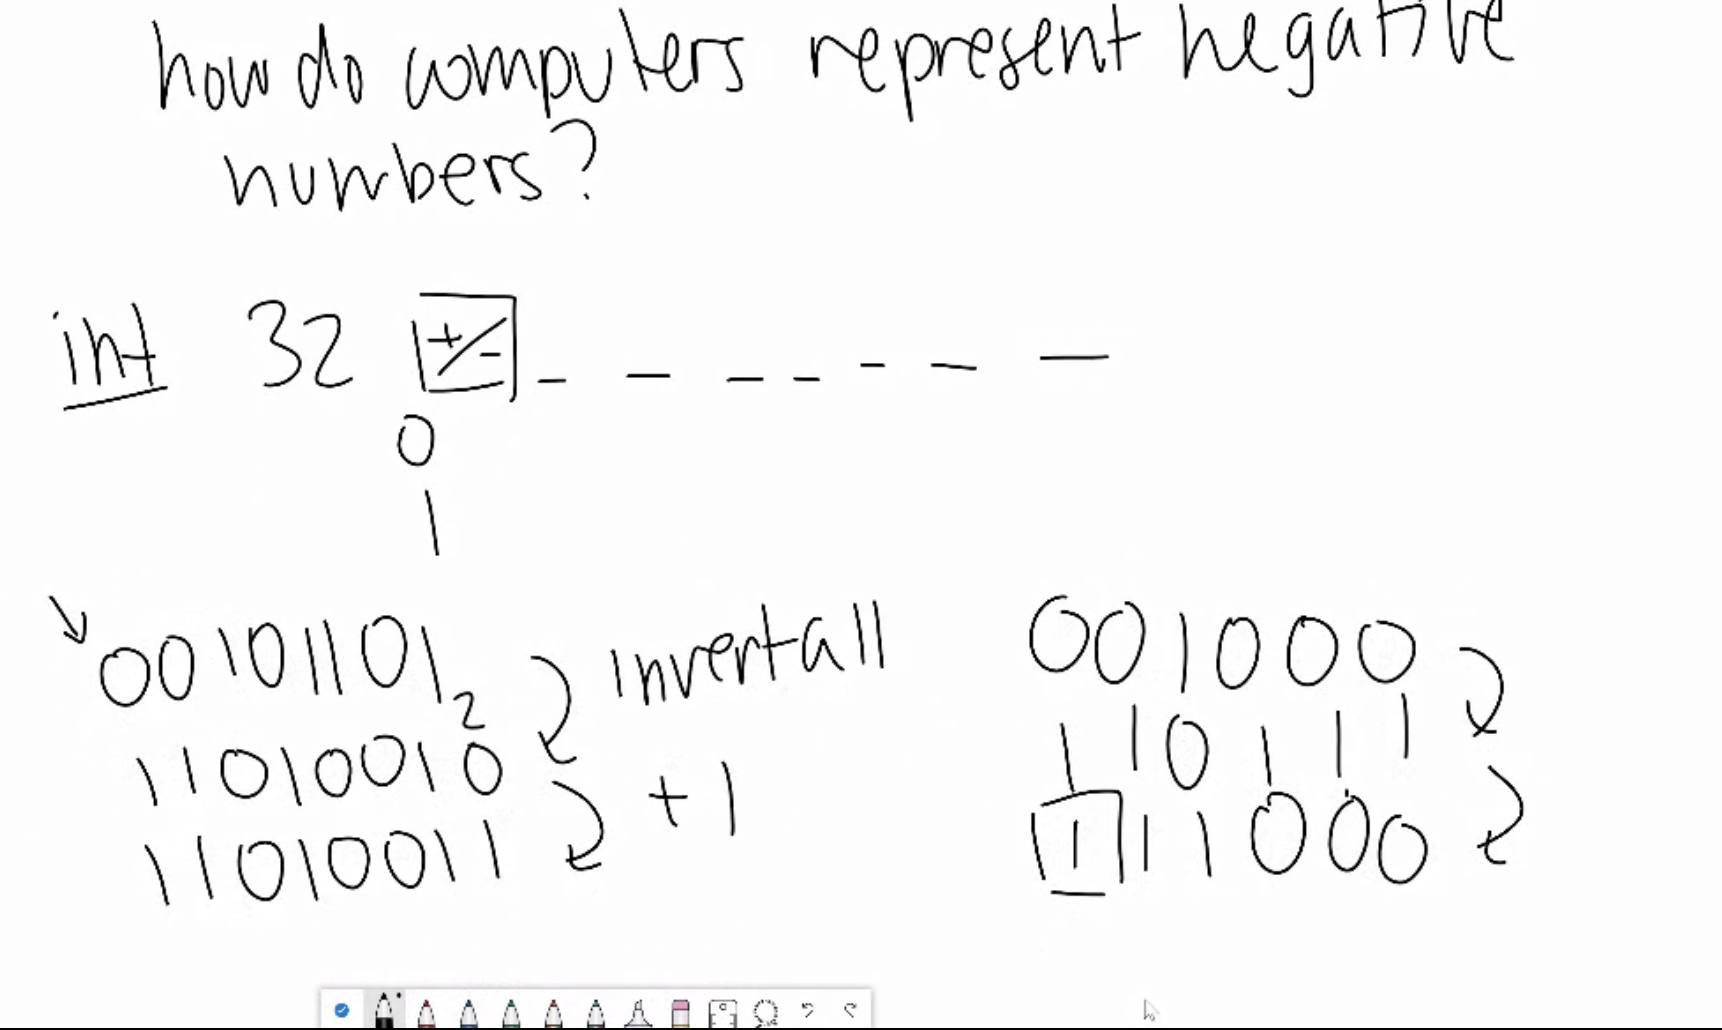 how do computers represent negative
numbers?
int 32 +/- _ _ _ _ _ _ _
0
1
00101101₂ invert all
11010010 +1
11010011
001000
110111
111000